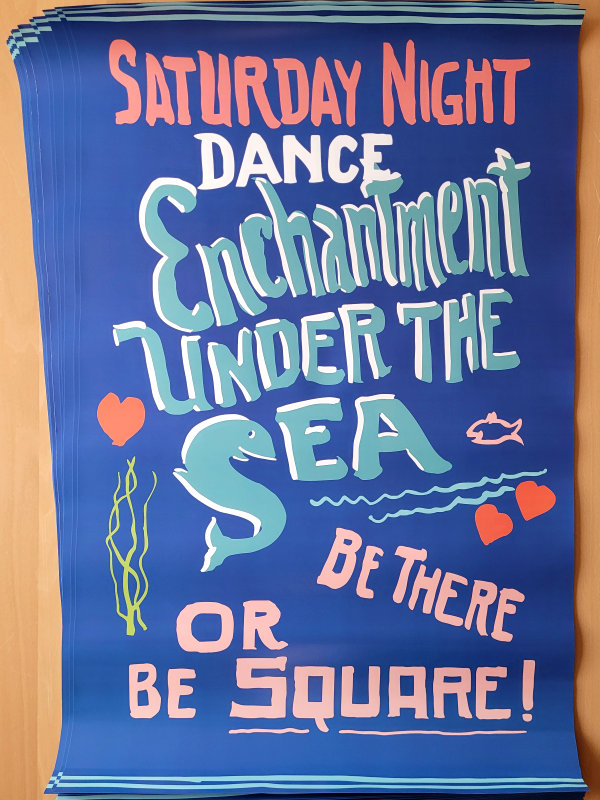 SATURDAY NIGHT
DANCE
Enchantment
UNDER THE
SEA
BE THERE
OR
BE SQUARE!